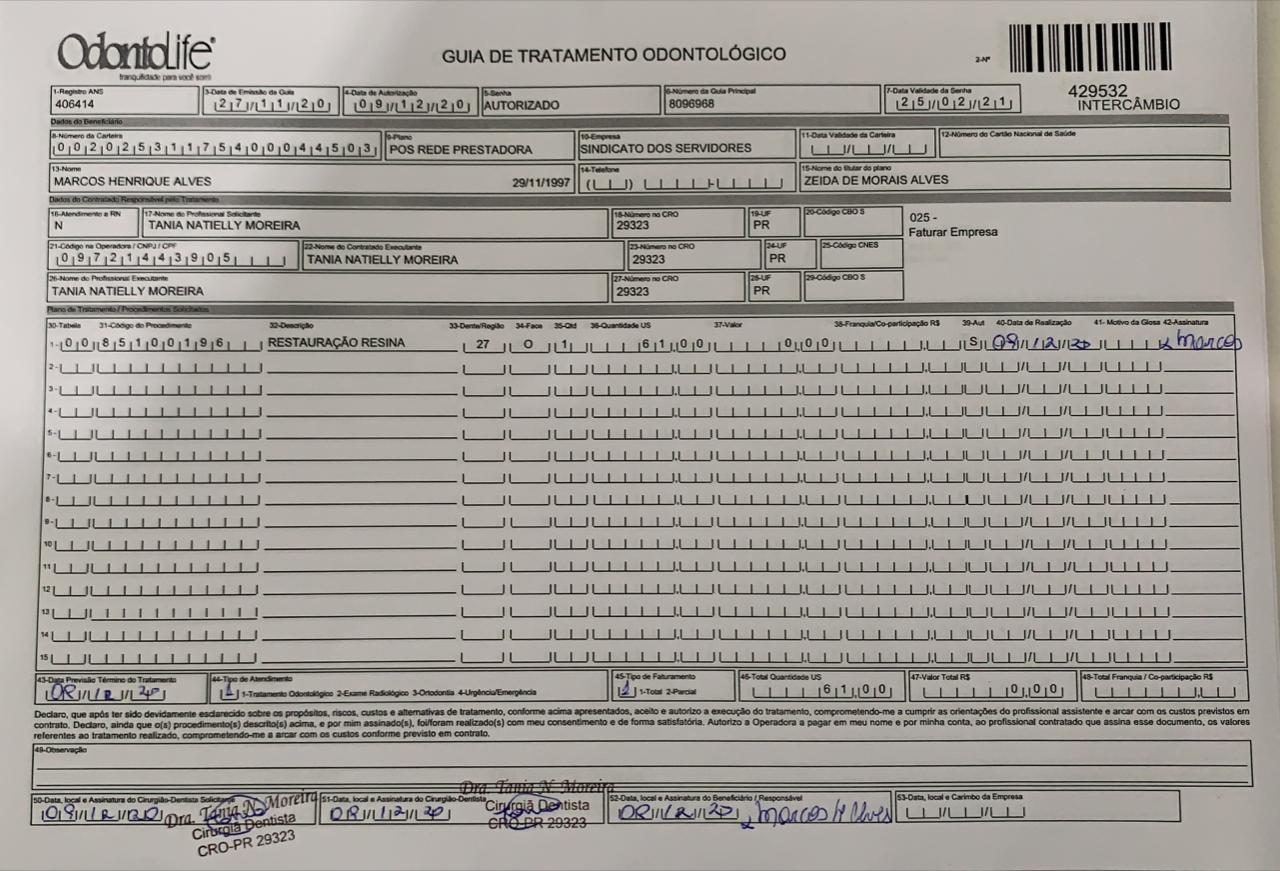 OdontoLife®
tranquilidade para você sorrir
GUIA DE TRATAMENTO ODONTOLÓGICO
2-Nº
429532
INTERCÂMBIO
1-Registro ANS 3-Data de Emissão da Guia 4-Data de Autorização 5-Senha 6-Número da Guia Principal 7-Data Validade da Senha
406414 27/11/20 09/12/20 AUTORIZADO 8096968 25/02/21
Dados do Beneficiário
8-Número da Carteira 9-Plano 10-Empresa 11-Data Validade da Carteira 12-Número do Cartão Nacional de Saúde
00202531175400044503 POS REDE PRESTADORA SINDICATO DOS SERVIDORES
13-Nome 14-Telefone 15-Nome do titular do plano
MARCOS HENRIQUE ALVES 29/11/1997 ZEIDA DE MORAIS ALVES
Dados do Contratado Responsável pelo Tratamento
16-Atendimento a RN 17-Nome do Profissional Solicitante 18-Número no CRO 19-UF 20-Código CBO S
N TANIA NATIELLY MOREIRA 29323 PR
025 -
Faturar Empresa
21-Código na Operadora / CNPJ / CPF 22-Nome do Contratado Executante 23-Número no CRO 24-UF 25-Código CNES
09721443905 TANIA NATIELLY MOREIRA 29323 PR
26-Nome do Profissional Executante 27-Número no CRO 28-UF 29-Código CBO S
TANIA NATIELLY MOREIRA 29323 PR
Plano de Tratamento / Procedimentos Solicitados
30-Tabela 31-Código do Procedimento 32-Descrição 33-Dente/Região 34-Face 35-Qtd 36-Quantidade US 37-Valor 38-Franquia/Co-participação R$ 39-Aut 40-Data de Realização 41- Motivo da Glosa 42-Assinatura
1- 00 85100196 RESTAURAÇÃO RESINA 27 O 1 61,00 0,00 S 09/12/20 Marcos
2-
3-
4-
5-
6-
7-
8-
9-
10
11
12
13
14
15
43-Data Previsão Término do Tratamento 44-Tipo de Atendimento 45-Tipo de Faturamento 46-Total Quantidade US 47-Valor Total R$ 48-Total Franquia / Co-participação R$
09/12/20 1 1-Tratamento Odontológico 2-Exame Radiológico 3-Ortodontia 4-Urgência/Emergência 1 1-Total 2-Parcial 61,00 0,00
Declaro, que após ter sido devidamente esclarecido sobre os propósitos, riscos, custos e alternativas de tratamento, conforme acima apresentados, aceito e autorizo a execução do tratamento, comprometendo-me a cumprir as orientações do profissional assistente e arcar com os custos previstos em
contrato. Declaro, ainda que o(s) procedimento(s) descrito(s) acima, e por mim assinado(s), foi/foram realizado(s) com meu consentimento e de forma satisfatória. Autorizo a Operadora a pagar em meu nome e por minha conta, ao profissional contratado que assina esse documento, os valores
referentes ao tratamento realizado, comprometendo-me a arcar com os custos conforme previsto em contrato.
49-Observação
50-Data, local e Assinatura do Cirurgião-Dentista Solicitante 51-Data, local e Assinatura do Cirurgião-Dentista 52-Data, local e Assinatura do Beneficiário / Responsável 53-Data, local e Carimbo da Empresa
09/12/20 09/12/20 09/12/20 Marcos H Alves
Dra. Tania N. Moreira
Cirurgiã Dentista
CRO-PR 29323
Dra. Tania N. Moreira
Cirurgiã Dentista
CRO-PR 29323